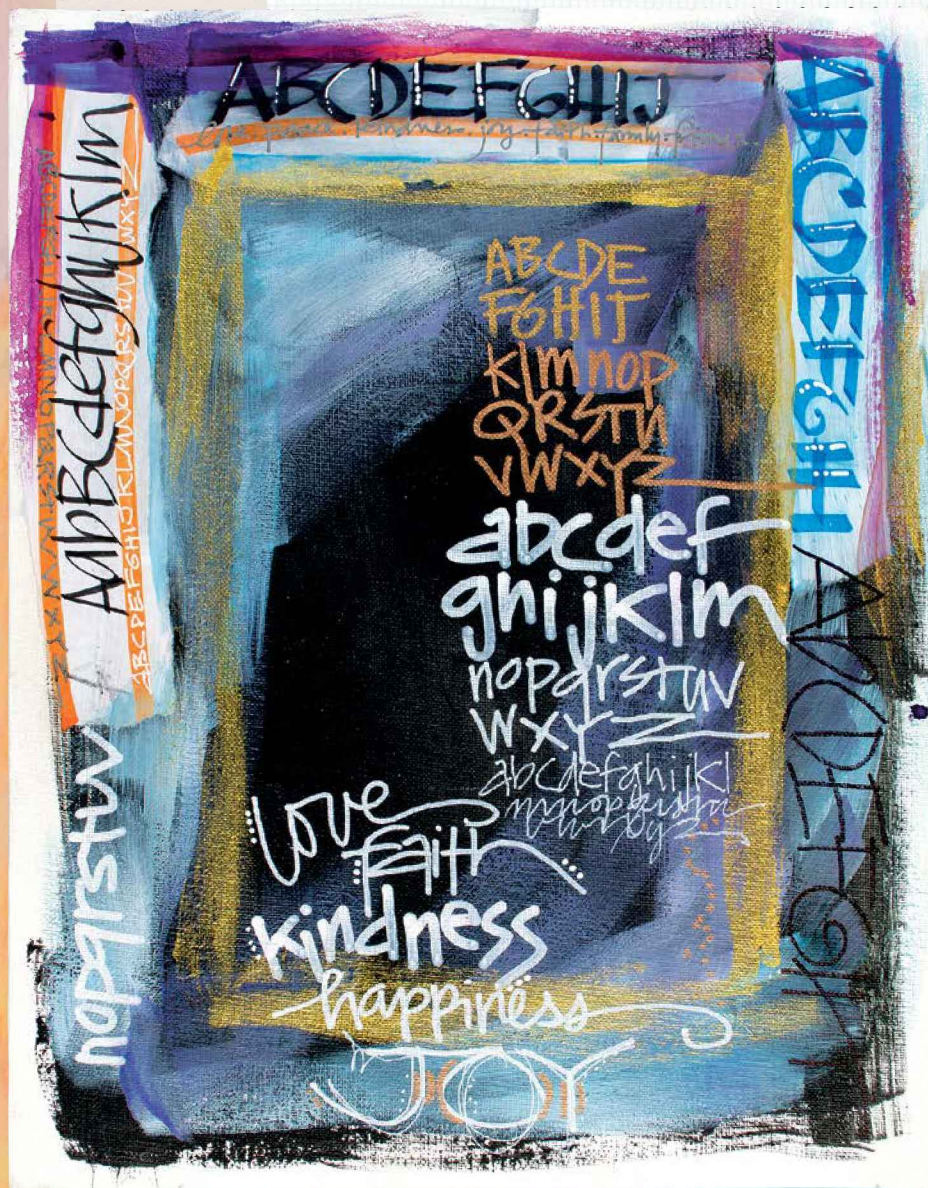 ABCDEFGHIJ
love · peace · kindness · joy · faith · family ·
AabBCdefghijklm
ABCDEFGHIJKLMNOPQRSTUVWXYZ
nopqrstuv
ABCDEFGH
ABCDE
FGHIJ
KlmnoP
QRSTU
VWXYZ
abcdef
ghijklm
nopqrstuv
WXYZ
abcdefghijkl
love
faith
kindness
happiness
JOY